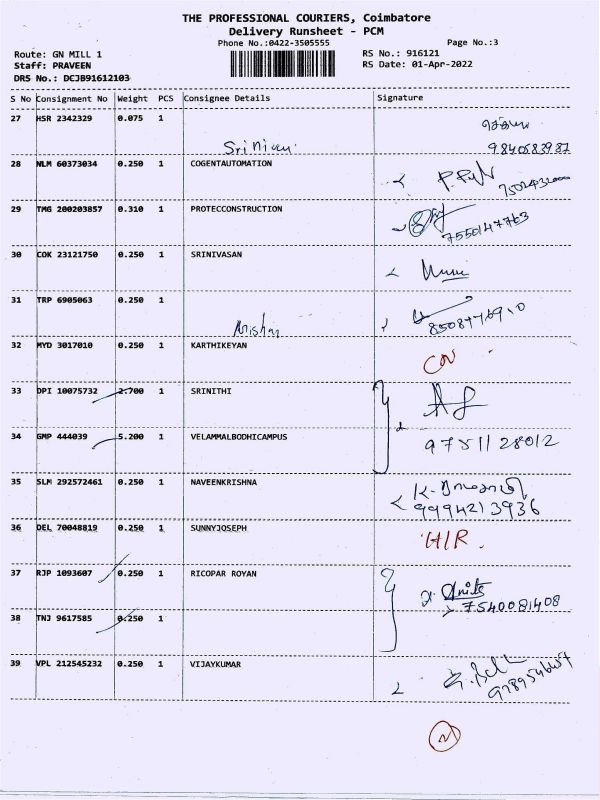 THE PROFESSIONAL COURIERS, Coimbatore
Delivery Runsheet - PCM
Phone No.:0422-3505555 Page No.:3
Route: GN MILL 1 RS No.: 916121
Staff: PRAVEEN RS Date: 01-Apr-2022
DRS No.: DCJB91612103
S No Consignment No Weight PCS Consignee Details Signature
27 HSR 2342329 0.075 1
9840683982
28 NLM 60373034 0.250 1 COGENTAUTOMATION
29 TMG 200203857 0.310 1 PROTECCONSTRUCTION
7550147763
30 COK 23121750 0.250 1 SRINIVASAN
31 TRP 6905063 0.250 1
32 MYD 3017010 0.250 1 KARTHIKEYAN
33 DPI 10075732 2.700 1 SRINITHI
34 GMP 444039 5.200 1 VELAMMALBODHICAMPUS
9751128012
35 SLM 292572461 0.250 1 NAVEENKRISHNA
9994213936
36 DEL 70048819 0.250 1 SUNNYJOSEPH
H/R.
37 RJP 1093607 0.250 1 RICOPAR ROYAN
7540081408
38 TNJ 9617585 0.250 1
39 VPL 212545232 0.250 1 VIJAYKUMAR
N